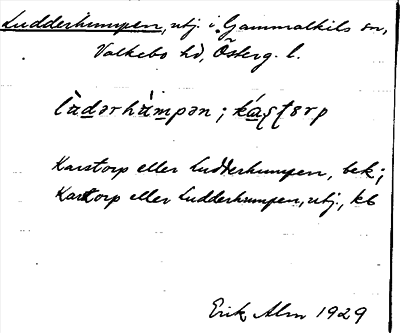 Ludderhumpen, utj. i Gammalkils sn,
Valkebo hd, Österg. l.
lùdərhùmpən ; káʂʈɔrp
Karstorp eller Ludderhumpen, bek;
Karstorp eller Ludderhumpen, utj., kb
Erik Alm 1929